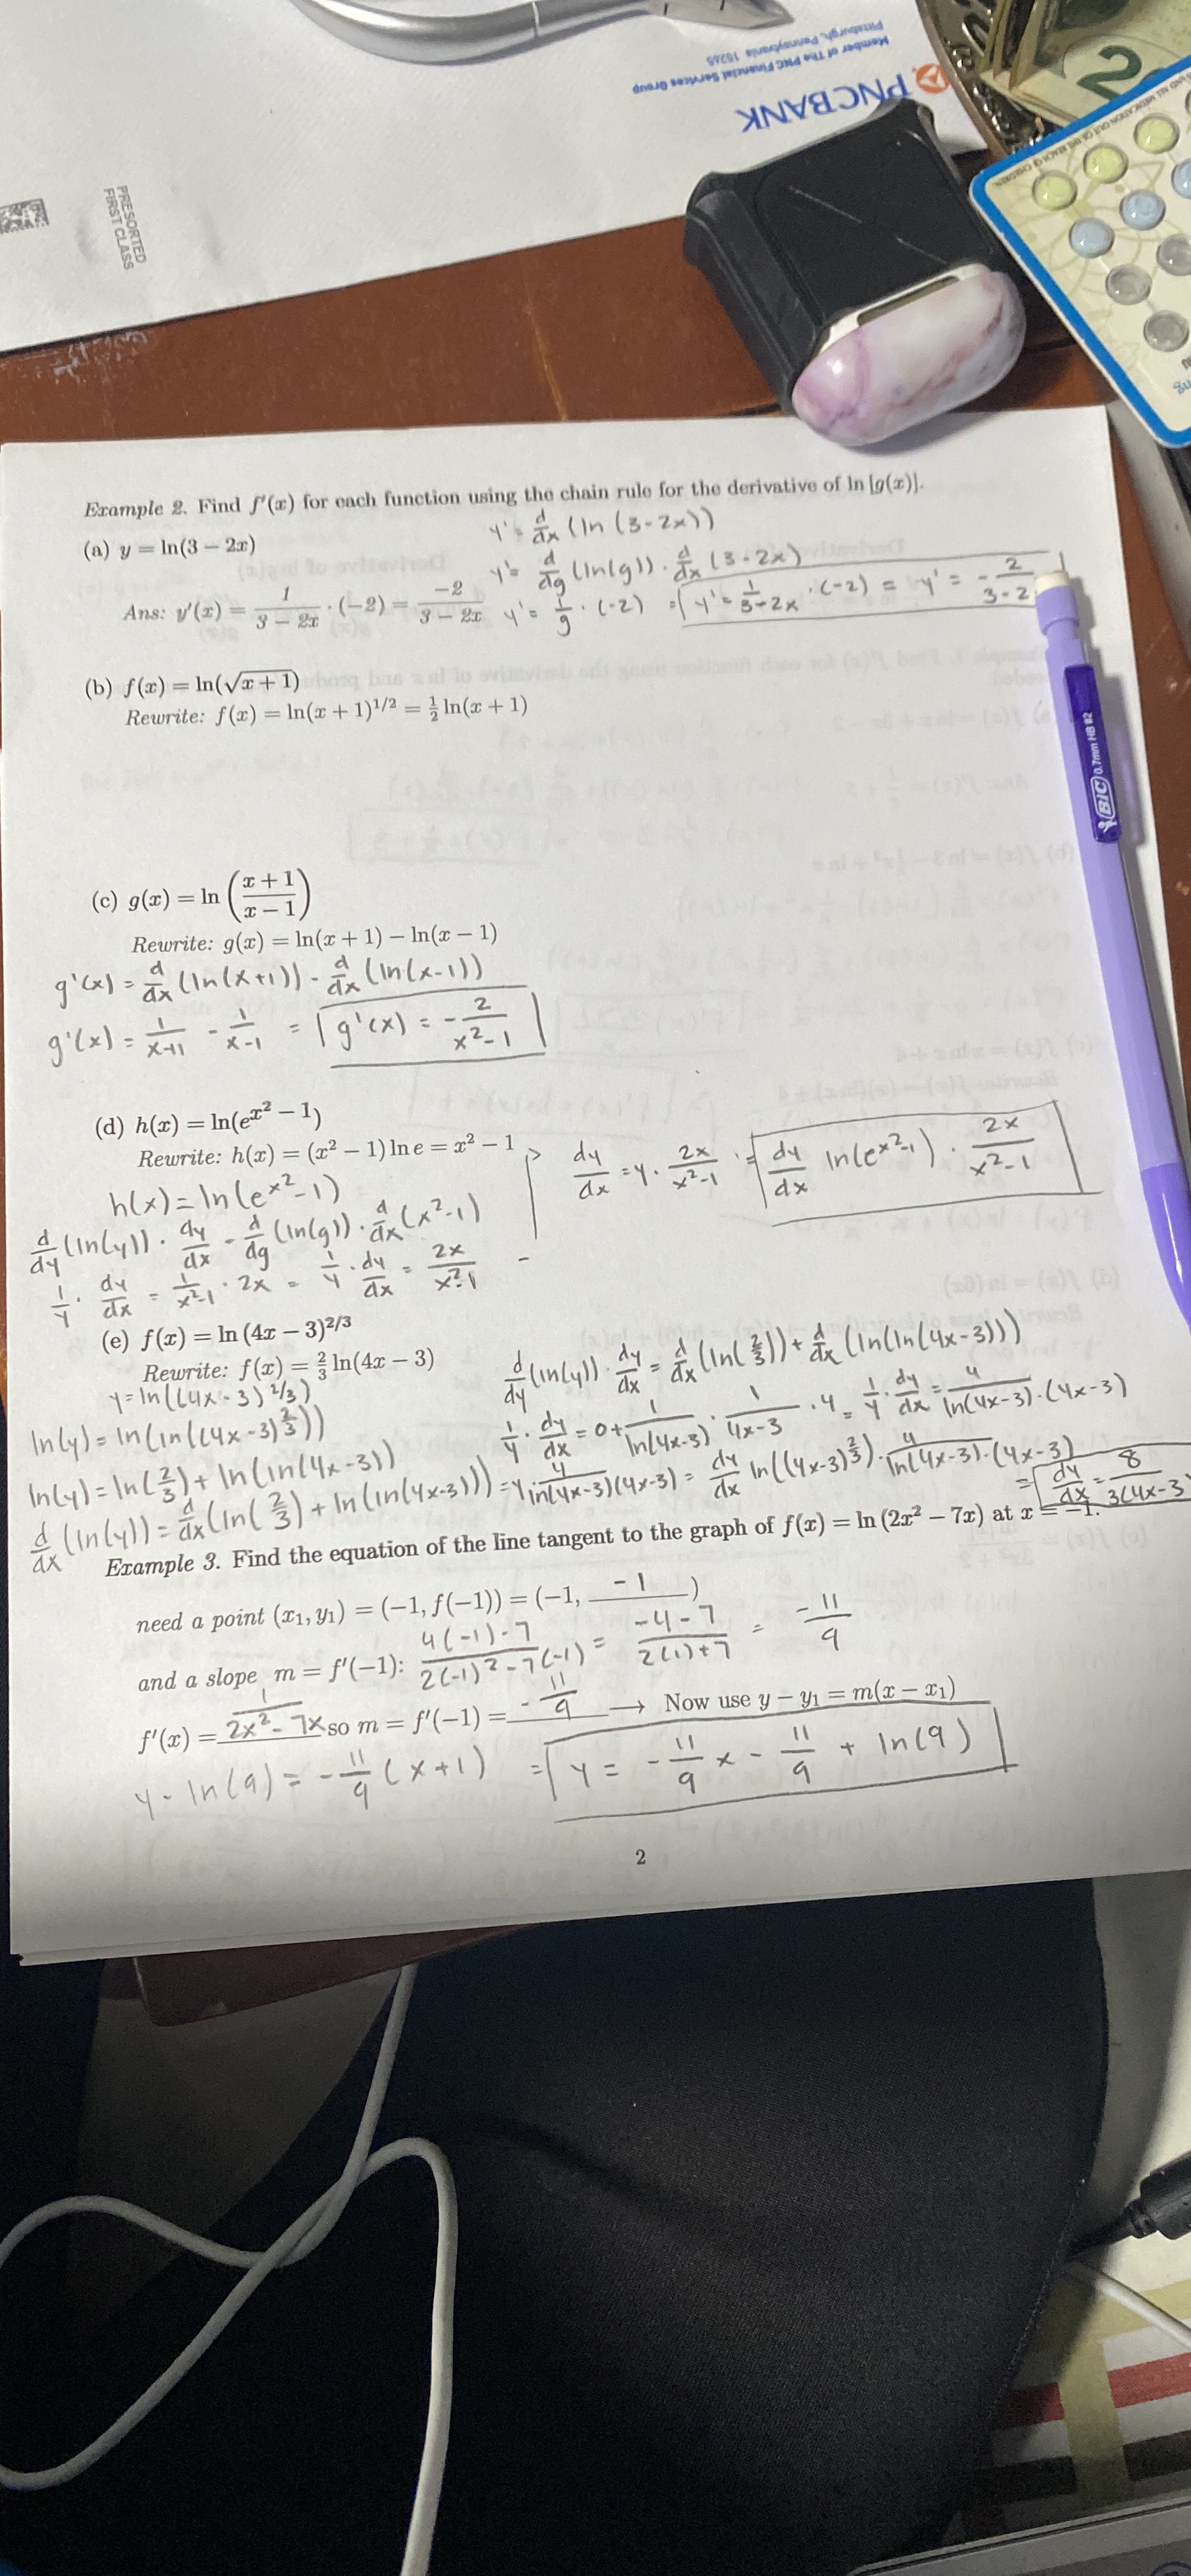 Pittsburgh, Pennsylvania 15265
Member of The PNC Financial Services Group
PNCBANK
PRESORTED
FIRST CLASS
2
BIC 0.7mm HB #2
Example 2. Find f'(x) for each function using the chain rule for the derivative of ln [g(x)].
(a) y = ln(3 − 2x)
y' = d/dx (ln (3-2x))
y' = d/dg (ln(g)) · d/dx (3-2x)
Ans: y'(x) = 1/(3 − 2x) · (−2) = −2/(3 − 2x)
y' = 1/g · (-2) = y' = 1/(3-2x) · (-2) = y' = - 2/(3-2
(b) f(x) = ln(√(x + 1))
Rewrite: f(x) = ln(x + 1)^1/2 = 1/2 ln(x + 1)
(c) g(x) = ln ((x + 1)/(x − 1))
Rewrite: g(x) = ln(x + 1) − ln(x − 1)
g'(x) = d/dx (ln(x+1)) - d/dx (ln(x-1))
g'(x) = 1/(x+1) - 1/(x-1) = g'(x) = - 2/(x²-1)
(d) h(x) = ln(e^x² − 1)
Rewrite: h(x) = (x² − 1) ln e = x² − 1
h(x) = ln(e^x²-1)
d/dy (ln(y)) · dy/dx = d/dg (ln(g)) · d/dx (x²-1)
1/y · dy/dx = 1/(x²-1) · 2x = 1/y · dy/dx = 2x/(x²-1)
> dy/dx = y · 2x/(x²-1) = dy/dx ln(e^x²-1) · 2x/(x²-1)
(e) f(x) = ln (4x − 3)^2/3
Rewrite: f(x) = 2/3 ln(4x − 3)
y = ln((4x-3)^2/3)
ln(y) = ln(ln((4x-3)^2/3))
ln(y) = ln(2/3) + ln(ln(4x-3))
d/dx (ln(y)) = d/dx (ln(2/3) + ln(ln(4x-3)))
d/dy (ln(y)) · dy/dx = d/dx (ln(2/3)) + d/dx (ln(ln(4x-3)))
1/y · dy/dx = 0 + 1/ln(4x-3) · 1/(4x-3) · 4 = 1/y · dy/dx = 4/ln(4x-3)·(4x-3)
= y · 4/ln(4x-3)(4x-3) = dy/dx ln((4x-3)^2/3) · 4/ln(4x-3)·(4x-3)
= dy/dx = 8/3(4x-3)
Example 3. Find the equation of the line tangent to the graph of f(x) = ln (2x² − 7x) at x = −1.
need a point (x₁, y₁) = (−1, f(−1)) = (−1, -1 )
and a slope m = f'(−1): 4(-1)-7/2(-1)²-7(-1) = -4-7/2(1)+7 = -11/9
f'(x) = 1/2x²-7x so m = f'(−1) = -11/9 → Now use y − y₁ = m(x − x₁)
y - ln(9) = - 11/9 (x+1) = y = - 11/9 x - 11/9 + ln(9)
2